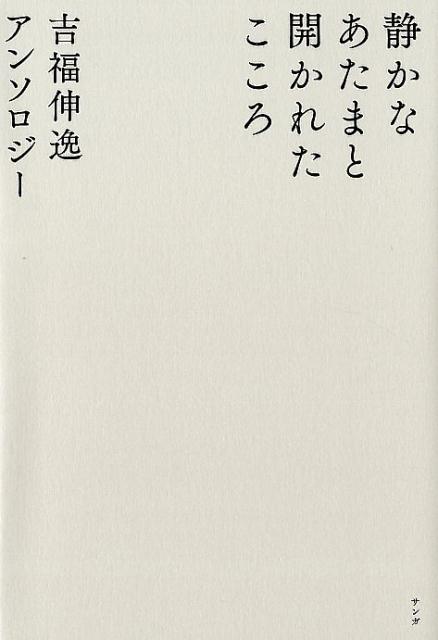 静かな
あたまと
開かれた
こころ
吉福伸逸
アンソロジー
サンガ